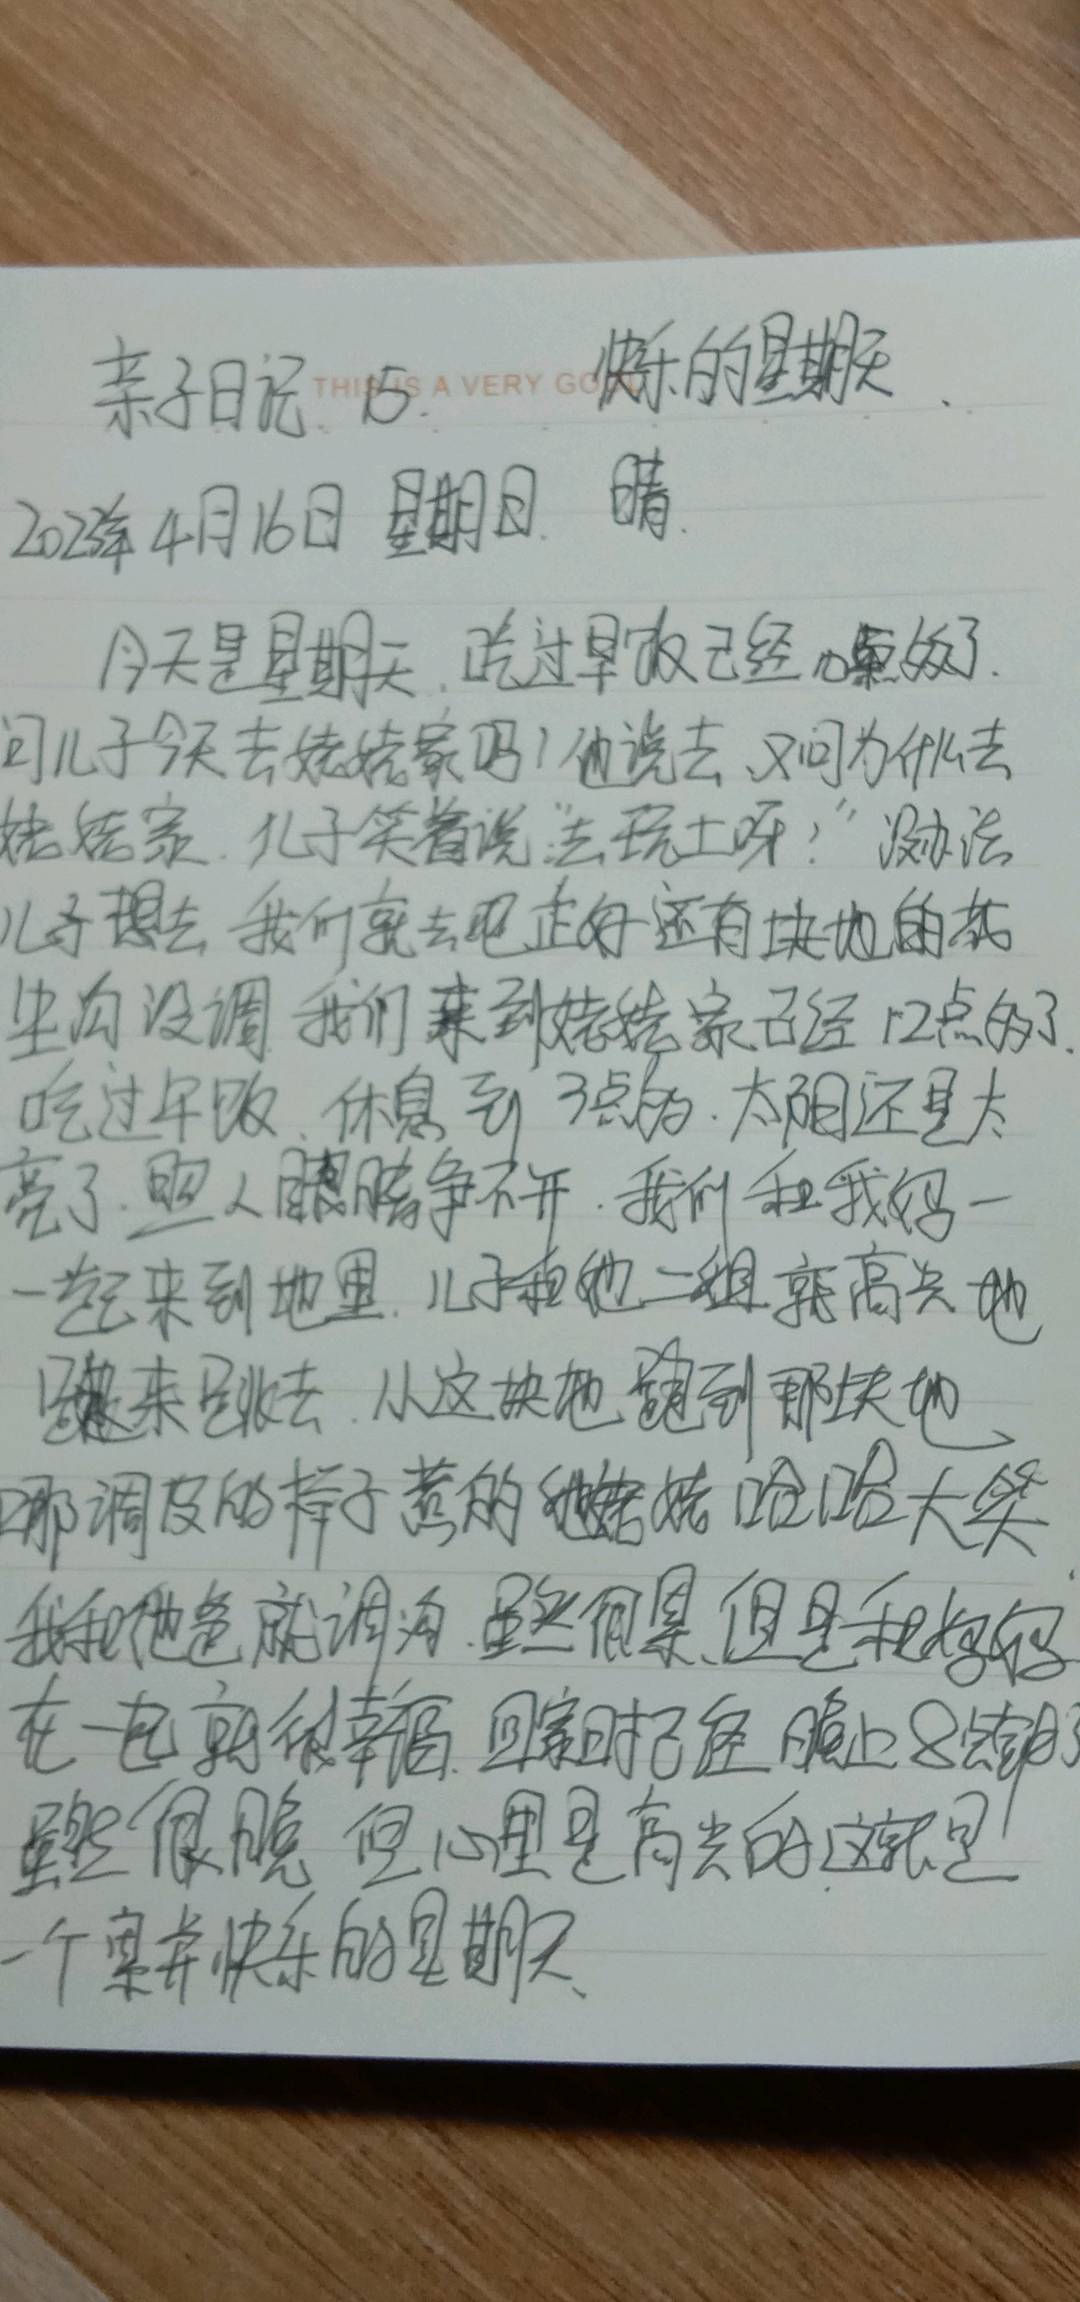 亲子日记 15. 快乐的星期天.
THIS IS A VERY GO
2023年4月16日 星期日. 晴.
今天是星期天, 吃过早饭已经 点的了.
问儿子今天去姥姥家吗?他说去,又问为什么去
姥姥家. 儿子笑着说"去玩土呀!" 没办法
儿子想去, 我们就去吧正好还有块地的花
生沟没调. 我们来到姥姥家已经12点的了.
吃过午饭, 休息到3点的. 太阳还是太
亮了. 照人眼睛争不开. 我们和我妈一
一起来到地里. 儿子和他二姐就高兴地
来跳去. 从这块地跑到那块地,
那调皮的样子惹的他姥姥哈哈大笑
我和他爸就调沟. 虽然很累, 但是和妈妈
在一起就很幸福. 回家时已经晚上8点 了
虽然很晚 但心里是高兴的这就是
一个 快乐的星期天、